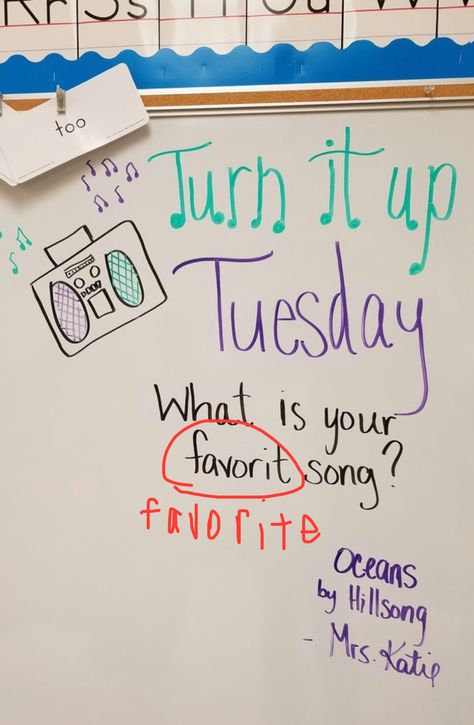 Rr Ss Tt Uu Vv Ww
too
Turn it up
Tuesday
What is your
favorit song?
favorite
Oceans
by Hillsong
- Mrs. Katie